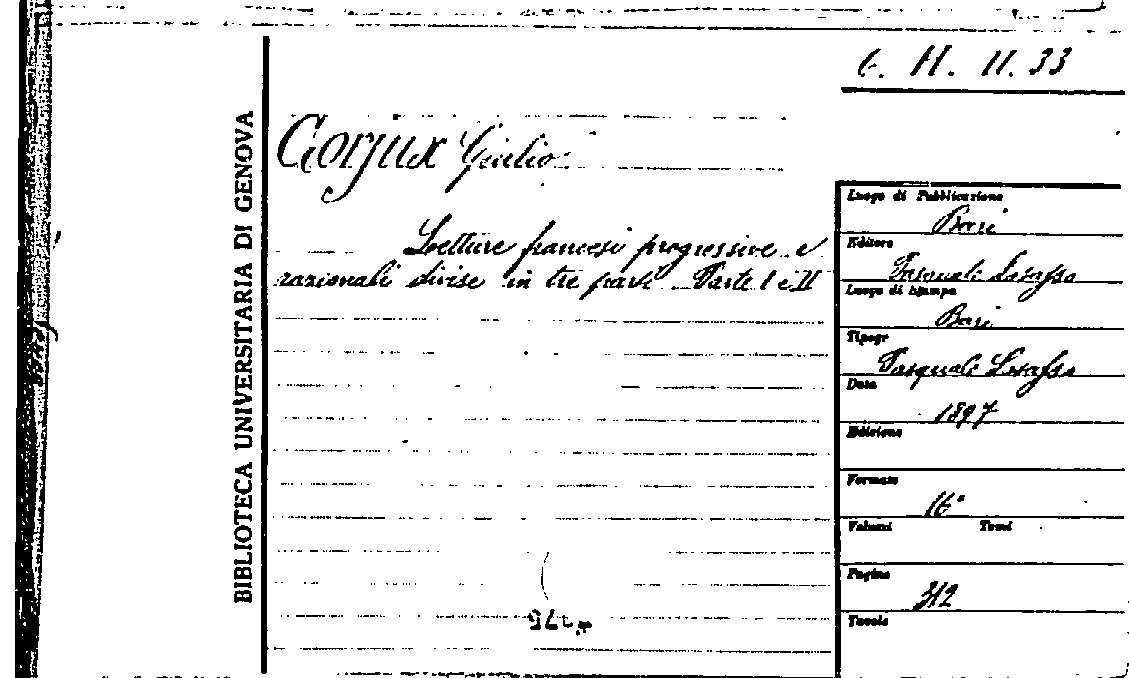 6. H. II. 33
BIBLIOTECA UNIVERSITARIA DI GENOVA
Gorjux Giulio
Letture francesi progressive e
razionali divise in tre parti. Parte I e II
Luogo di Pubblicazione
Bari
Editore
Pasquali Losasso
Luogo di Stampa
Bari
Tipogr
Pasquali Losasso
Data
1897
Edizione
Formato
16°
Volumi Tomi
Pagine
312
Tavole